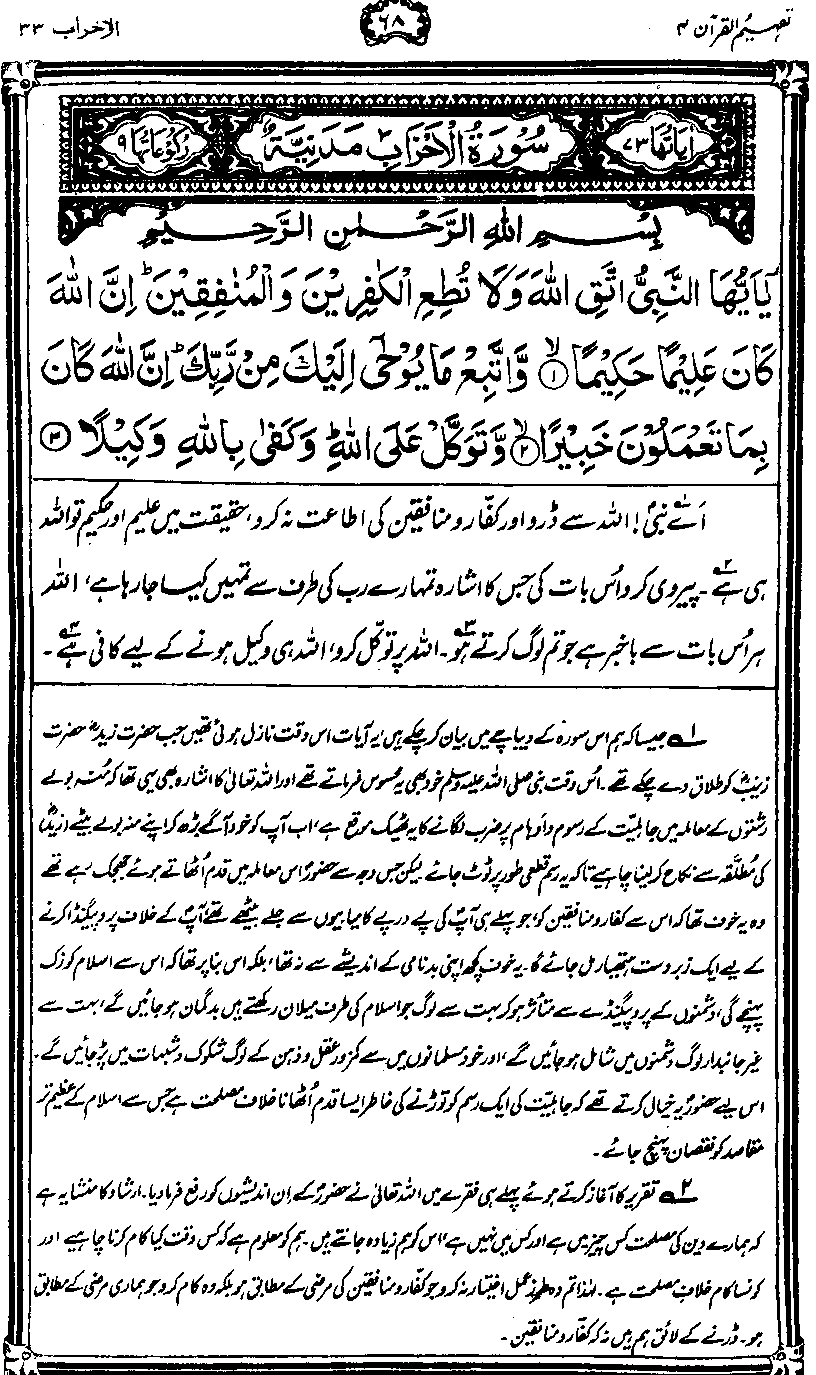 تفہیم القرآن ۴
۶۸
الاحزاب ۳۳
اٰيَاتُهَا ٧٣
سُوْرَةُ الْاَحْزَابِ مَدَنِيَّةٌ
رُكُوْعَاتُهَا ٩
بِسْمِ اللهِ الرَّحْمٰنِ الرَّحِيْمِ
يٰۤاَيُّهَا النَّبِيُّ اتَّقِ اللهَ وَلَا تُطِعِ الْكٰفِرِيْنَ وَالْمُنٰفِقِيْنَ ؕ اِنَّ اللهَ
كَانَ عَلِيْمًا حَكِيْمًا ۙ﴿١﴾ وَّاتَّبِعْ مَا يُوْحٰۤى اِلَيْكَ مِنْ رَّبِّكَ ؕ اِنَّ اللهَ كَانَ
بِمَا تَعْمَلُوْنَ خَبِيْرًا ۙ﴿٢﴾ وَّتَوَكَّلْ عَلَى اللهِ ؕ وَكَفٰى بِاللهِ وَكِيْلًا ﴿٣﴾
اَے نبیؐ! اللہ سے ڈرو اور کفّار و منافقین کی اطاعت نہ کرو، حقیقت میں علیم اور حکیم تو اللہ
ہی ہے۲۔ پیروی کرو اُس بات کی جس کا اشارہ تمہارے رب کی طرف سے تمہیں کیا جا رہا ہے، اللہ
ہر اُس بات سے باخبر ہے جو تم لوگ کرتے ہو۳۔ اللہ پر توکّل کرو، اللہ ہی وکیل ہونے کے لیے کافی ہے۴۔
۱؎ جیسا کہ ہم اس سورۃ کے دیباچے میں بیان کر چکے ہیں، یہ آیات اس وقت نازل ہوئی تھیں جب حضرت زیدؓ حضرت
زینبؓ کو طلاق دے چکے تھے۔ اُس وقت نبی صلی اللہ علیہ وسلم خود بھی یہ محسوس فرماتے تھے اور اللہ تعالیٰ کا اشارہ بھی یہی تھا کہ منہ بولے
رشتوں کے معاملہ میں جاہلیّت کے رسوم و اوہام پر ضرب لگانے کا یہ ٹھیک موقع ہے، اب آپ کو خود آگے بڑھ کر اپنے منہ بولے بیٹے (زیدؓ)
کی مُطلَّقہ سے نکاح کر لینا چاہیے تاکہ یہ رسم قطعی طور پر ٹوٹ جائے۔ لیکن جس وجہ سے حضورؐ اس معاملہ میں قدم اُٹھاتے ہوئے جھجک رہے تھے
وہ یہ خوف تھا کہ اس سے کفار و منافقین کو، جو پہلے ہی آپؐ کی پے در پے کامیابیوں سے جلے بیٹھے تھے، آپؐ کے خلاف پروپیگنڈا کرنے
کے لیے ایک زبردست ہتھیار مل جائے گا۔ یہ خوف کچھ اپنی بدنامی کے اندیشے سے نہ تھا، بلکہ اس بنا پر تھا کہ اس سے اسلام کو زک
پہنچے گی، دشمنوں کے پروپیگنڈے سے متاثر ہو کر بہت سے لوگ جو اسلام کی طرف میلان رکھتے ہیں بدگمان ہو جائیں گے، بہت سے
غیر جانبدار لوگ دشمنوں میں شامل ہو جائیں گے، اور خود مسلمانوں میں سے کمزور عقل و ذہن کے لوگ شکوک و شبہات میں پڑ جائیں گے۔
اس لیے حضورؐ یہ خیال کرتے تھے کہ جاہلیّت کی ایک رسم کو توڑنے کی خاطر ایسا قدم اُٹھانا خلافِ مصلحت ہے جس سے اسلام کے عظیم تر
مقاصد کو نقصان پہنچ جائے۔
۲؎ تقریر کا آغاز کرتے ہوئے پہلے ہی فقرے میں اللہ تعالیٰ نے حضورؐ کے ان اندیشوں کو رفع فرما دیا۔ ارشاد کا منشا یہ ہے
کہ ہمارے دین کی مصلحت کس چیز میں ہے اور کس میں نہیں ہے، اس کو ہم زیادہ جانتے ہیں۔ ہم کو معلوم ہے کہ کس وقت کیا کام کرنا چاہیے اور
کونسا کام خلافِ مصلحت ہے۔ لہٰذا تم وہ طرزِ عمل اختیار نہ کرو جو کفّار و منافقین کی مرضی کے مطابق ہو بلکہ وہ کام کرو جو ہماری مرضی کے مطابق
ہو۔ ڈرنے کے لائق ہم ہیں نہ کہ کفّار و منافقین۔